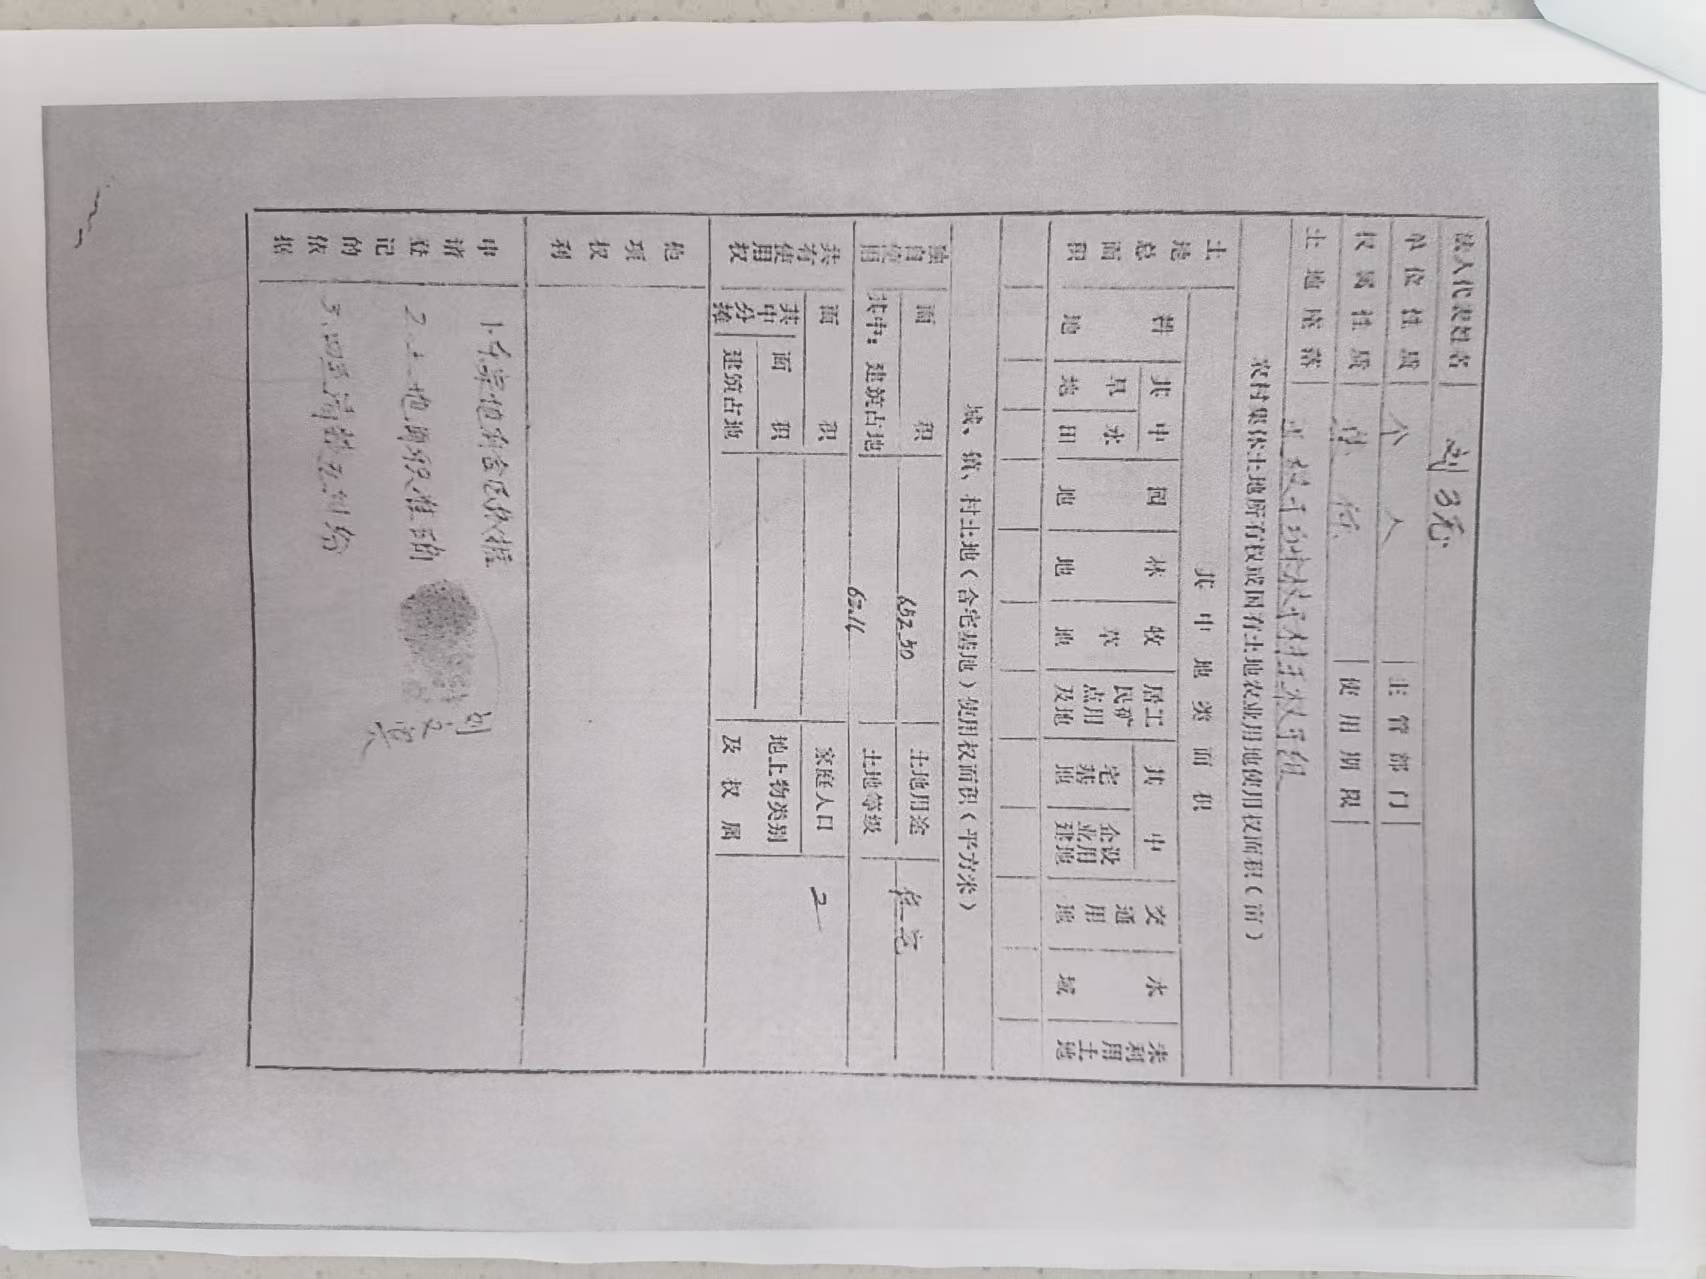 法人代表姓名 刘
单位性质 个人 主管部门
权属性质 使用期限
土地座落
农村集体土地所有权或国有土地农业用地使用权面积（亩）
土地总面积 其中地类面积
耕地 其中 旱地 水田 园地 林地 牧草地 居民点及工矿用地 其中 宅基地 企业建设用地 交通用地 水域 未利用土地
城、镇、村土地（含宅基地）使用权面积（平方米）
独自使用 面积 652.50 土地用途 住宅
其中：建筑占地 62.16 土地等级
共有使用权 面积 家庭人口 2
其中分摊 面积 地上物类别及权属
建筑占地
他项权利
申请登记的依据 1.
2.土地面积准确
3.四至
刘